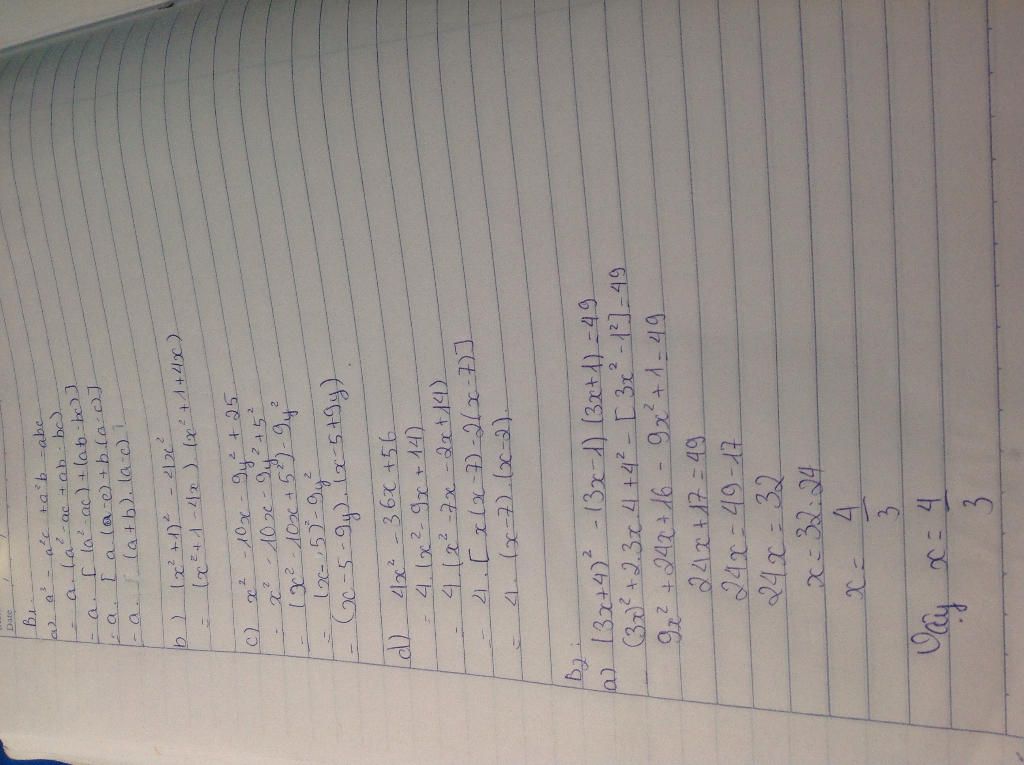 Date
B1
a) a³ - a²c + a²b - abc
= a.(a² - ac + ab - bc)
= a.[(a² - ac) + (ab - bc)]
= a.[a(a - c) + b.(a - c)]
= a.(a + b).(a - c)
b) (x² + 1)² - 4x²
= (x² + 1 - 4x)(x² + 1 + 4x)
c) x² - 10x - 9y² + 25
= x² - 10x - 9y² + 5²
= (x² - 10x + 5²) - 9y²
= (x - 5)² - 9y²
= (x - 5 - 9y).(x - 5 + 9y).
d) 4x² - 36x + 56
= 4.(x² - 9x + 14)
= 4.(x² - 7x - 2x + 14)
= 4.[x(x - 7) - 2(x - 7)]
= 4.(x - 7).(x - 2).
B2:
a) (3x + 4)² - (3x - 1)(3x + 1) = 49
(3x)² + 2.3x.4 + 4² - [3x² - 1²] = 49
9x² + 24x + 16 - 9x² + 1 = 49
24x + 17 = 49
24x = 49 - 17
24x = 32
x = 32 : 24
x = 4/3
Vậy x = 4/3